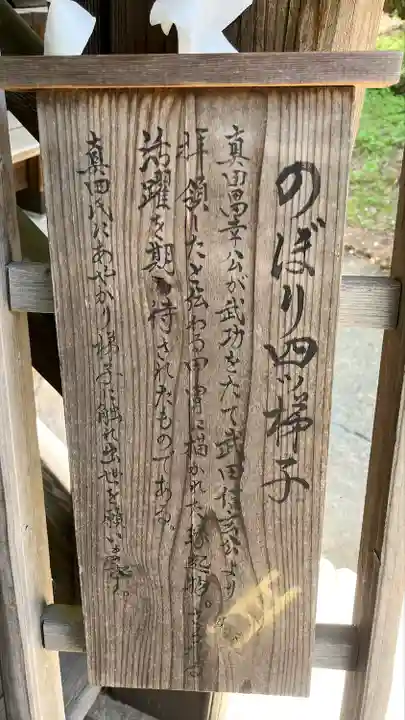 のぼり四ツ梯子
真田昌幸公が武功をたて武田信玄公より
拝領したと伝わる甲冑に描かれた縁起物。
活躍を期待されたものである。
真田氏にあやかり梯子に触れ出世を願い